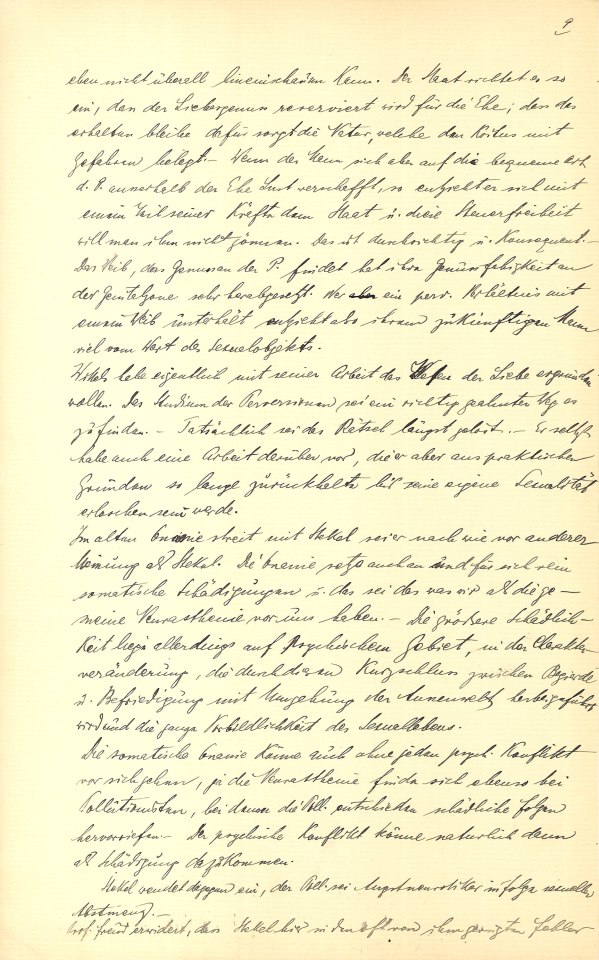 9
eben nicht überall hineinschauen kann. Der Staat richtet es so
ein, dass der Liebesgenuss reserviert wird für die Ehe; dass das
erhalten bleibe dafür sorgt die Natur, welche den Koitus mit
Gefahren belegt. — Wenn der Mann sich aber auf die bequeme Art
d. P. ausserhalb der Ehe Lust verschafft, so entzieht er sich mit
einem Teil seiner Kräfte dem Staat u. diese Steuerfreiheit
will man ihm nicht gönnen. Das ist durchsichtig u. konsequent. —
Das Weib, das Genossen der P. findet hat ihre Genussfähigkeit an
der Genitalzone sehr herabgesetzt. Wer aber ein perv. Verhältnis mit
einem Weib unterhält entzieht also ihrem zukünftigen Mann
viel vom Wert des Sexualobjekts.
habe eigentlich mit seiner Arbeit das Wesen der Liebe ergründen
wollen. Das Studium der Perversionen sei ein richtig geahnter Weg es
zu finden. — Tatsächlich sei das Rätsel längst gelöst. — Er selbst
habe auch eine Arbeit darüber vor, die er aber aus praktischen
Gründen so lange zurückhalte bis seine eigene Sexualität
erloschen sein werde.
Im alten Onanie streit mit Stekel sei er nach wie vor anderer
Meinung als Stekel. Die Onanie setze auch an und für sich rein
somatische Schädigungen u. das sei das was wir als die ge-
meine Neurasthenie vor uns haben. — Die grössere Schädlich-
keit liege allerdings auf psychischem Gebiet, in der Charakter-
veränderung, die durch diesen Kurzschluss zwischen Begierde
u. Befriedigung mit Umgehung der Aussenwelt herbeigeführt
wird und die ganze Vorbildlichkeit des Sexuallebens.
Die somatische Onanie könne auch ohne jeden psych. Konflikt
vor sich gehen, ja die Neurasthenie finde sich ebenso bei
Pollutionisten, bei denen die Poll. entschieden schädliche Folgen
hervorriefen. — Der psychische Konflikt könne natürlich dann
als Schädigung dazukommen.
Stekel wendet dagegen ein, der Poll. sei Angstneurotiker infolge sexueller
Abstinenz. —
Prof. Freud erwidert, dass Stekel hier in den oft von ihm gerügten Fehler